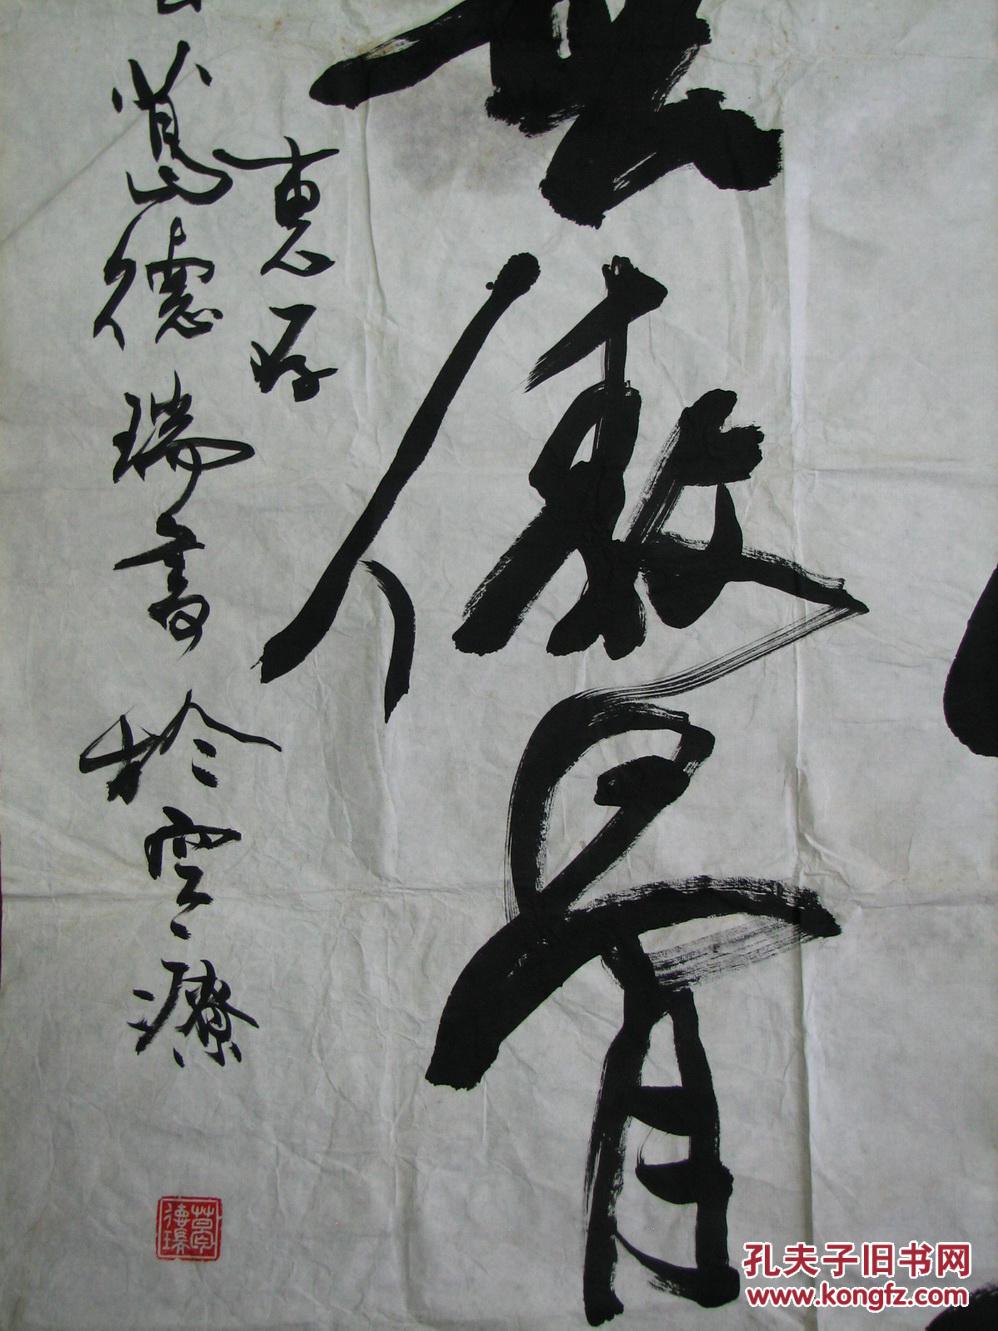 傲骨
惠存
德瑞書於雲療
德瑞
孔夫子旧书网
www.kongfz.com